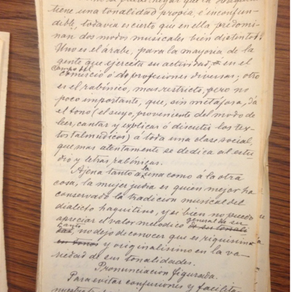 tiene una tonalidad propia e inconfun-
dible, todavía es cierto que en ella predomi-
nan dos modos musicales bien distintos.
Uno es el árabe, para la mayoría de la
gente que ejercita su actividad en el
campo del
comercio ó de profesiones diversas; otro
es el rabínico, mas restricto, pero no
poco importante, que, sin metáfora, da
el tono (el suyo proveniente del modo de
leer, cantar y explicar ó discutir los tex-
tos talmúdicos) á toda una clase social
que mas atentamente se dedica al estu-
dio y letras rabínicas.
Ajena tanto á una como á la otra
cosa, la mujer judía es quien mejor ha
conservado la tradicion musical del
dialecto haquitiesco, y es bien no pueda
apreciar el valor melodico
canto
no dejo de conocer que es riquísimo
en tonos y originalísimo en la va-
riedad de sus tonalidades.
Pronunciacion figurada.
Para evitar confusiones y facilitar